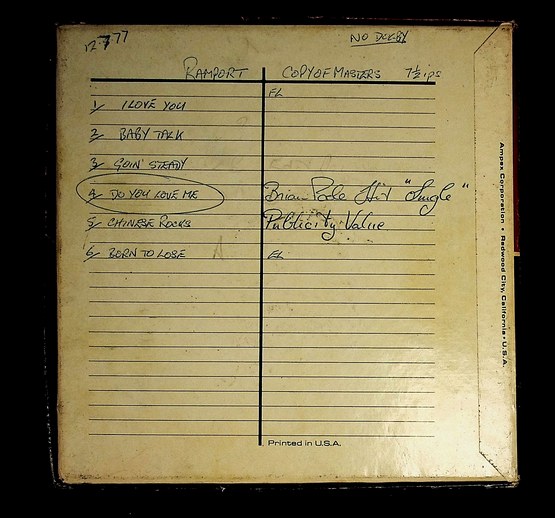 12-3-77
NO DOLBY
RAMPORT COPY OF MASTERS 7½ ips
EL
1/ I LOVE YOU
2/ BABY TALK
3/ GOIN' STEADY
4/ DO YOU LOVE ME Brian Poole Hit "Single"
5/ CHINESE ROCKS Publicity Value
6/ BORN TO LOSE EL
Printed in U.S.A.
Ampex Corporation • Redwood City, California • U.S.A.